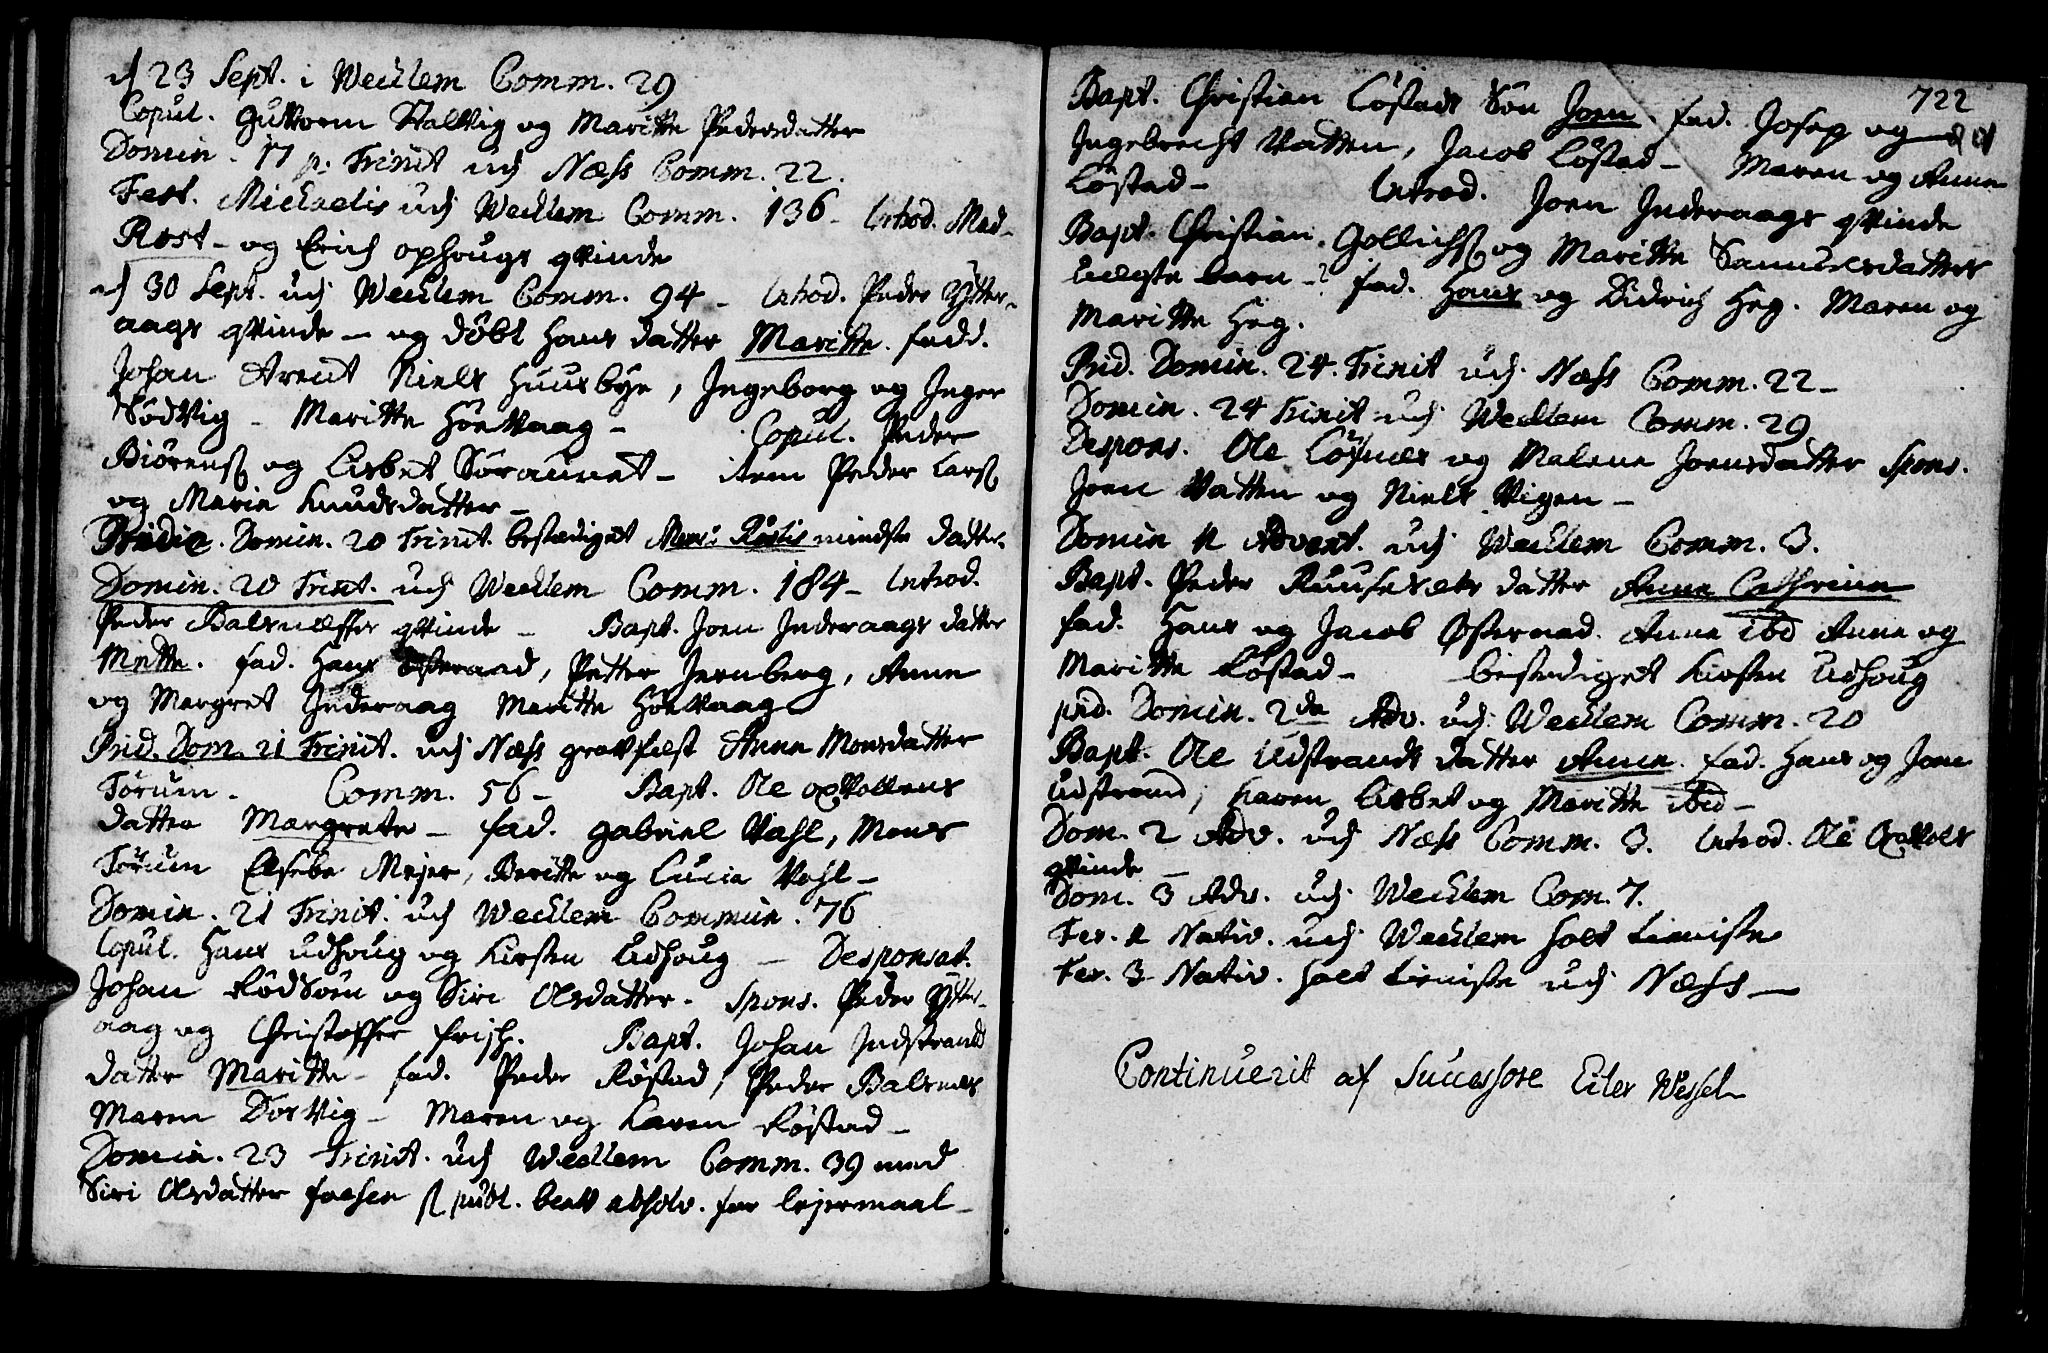 d 23 Sept. i Wecklem Comm. 29
Copul. Guttorm Stallvig og Maritte Pedersdatter
Domin. 17 p. Trinit udj Næss Comm. 22.
Fest. Michaelis udj Wecklem Comm. 136 - Introd. Mad.
Røst - og Erich ophougs qvinde
d 30 Sept. udj Wecklem Comm. 94 - Introd. Peder Ytter-
aags qvinde - og døbt hans datter Maritte. fadd.
Johan Arent Niels Huusbye, Ingeborg og Inger
Sødvig - Maritte Hövaag - Copul. Peder
Biörenss og Lisbet Söraunet - item Peder Larss
og Maria Knudsdatter -
Pridie. Domin. 20 Trinit. bestediget Mons: Röstis mindste datter.
Domin. 20 Trinit. udj Wecklem Comm. 184 - Introd.
Peder Balsnæsses qvinde - Bapt. Joen Inderaags datter
Mette. fad. Hans Østeraad, Petter Jernberg, Anne
og Margret Inderaag Maritte Hövaag
Prid. Dom. 21 Trinit. udj Næss gravfæst Anne Monsdatter
Törum - Comm. 56 - Bapt. Ole oxvollens
datter Margrete - fad. gabriel Vahl, Mons
Törum Elsebe Mejer, Beritte og Lucia Vahl -
Domin. 21 Trinit. udj Wecklem Commun. 76
Copul. Hans udhoug og Kirsten Udhoug - Desponsat.
Johan Rödsöen og Siri Olsdatter. Spons. Peder Ytter-
aag og Christoffer Bapt. Johan Indstrands
datter Maritte - fad. Peder Röstad, Peder Balsnæs
Maren Dorvig - Maren og Karen Röstad -
Domin. 23 Trinit. udj Wecklem Comm. 39 med
Siri Olsdatter publ. absolv. for lejermaal -
722
Bapt. Christian Löstads Sön Joen. fad. Josep og
Ingebrecht Vatten, Jacob Löstad - Maren og Anne
Löstad - Introd. Joen Inderaags qvinde
Bapt. Christian Gollichss og Maritte Samuelsdatters
uægte barn - fad. Hans og Didrich Heg. Maren og
Maritte Heg.
Prid. Domin. 24. Trinit udj Næss Comm. 22 -
Domin. 24 Trinit udj Wecklem Comm. 29
Despons. Ole og Malene Joensdatter Spons.
Joen Vatten og Niels Vigen -
Domin 1 Advent. udj Wecklem Comm. 3.
Bapt. Peder datter Anne Cathrine
fad. Hans og Jacob Østeraad. Anne ibid Anne og
Maritte Röstad - bestediget Kirsten Udhoug
prid. Domin. 2da Adv. udj Wecklem Comm. 20
Bapt. Ole Udstrands datter Anne. fad. Hans og Joen
Udstrand, Karen Lisbet og Maritte ibid -
Dom. 2 Adv. udj Næss Comm. 3. Introd. Ole Oxvols
qvinde -
Dom. 3 Adv. udj Wecklem Com. 7.
Fer. 1 Nativ. udj Wecklem holt tieniste
Fer. 3 Nativ. holt tieniste udj Næss -
Continuerit af Successore Eiler Wessel